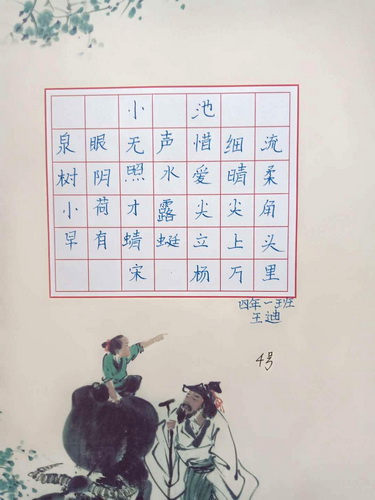 小池
泉眼无声惜细流
树阴照水爱晴柔
小荷才露尖尖角
早有蜻蜓立上头
宋 杨万里
四年一班
王迪
4号